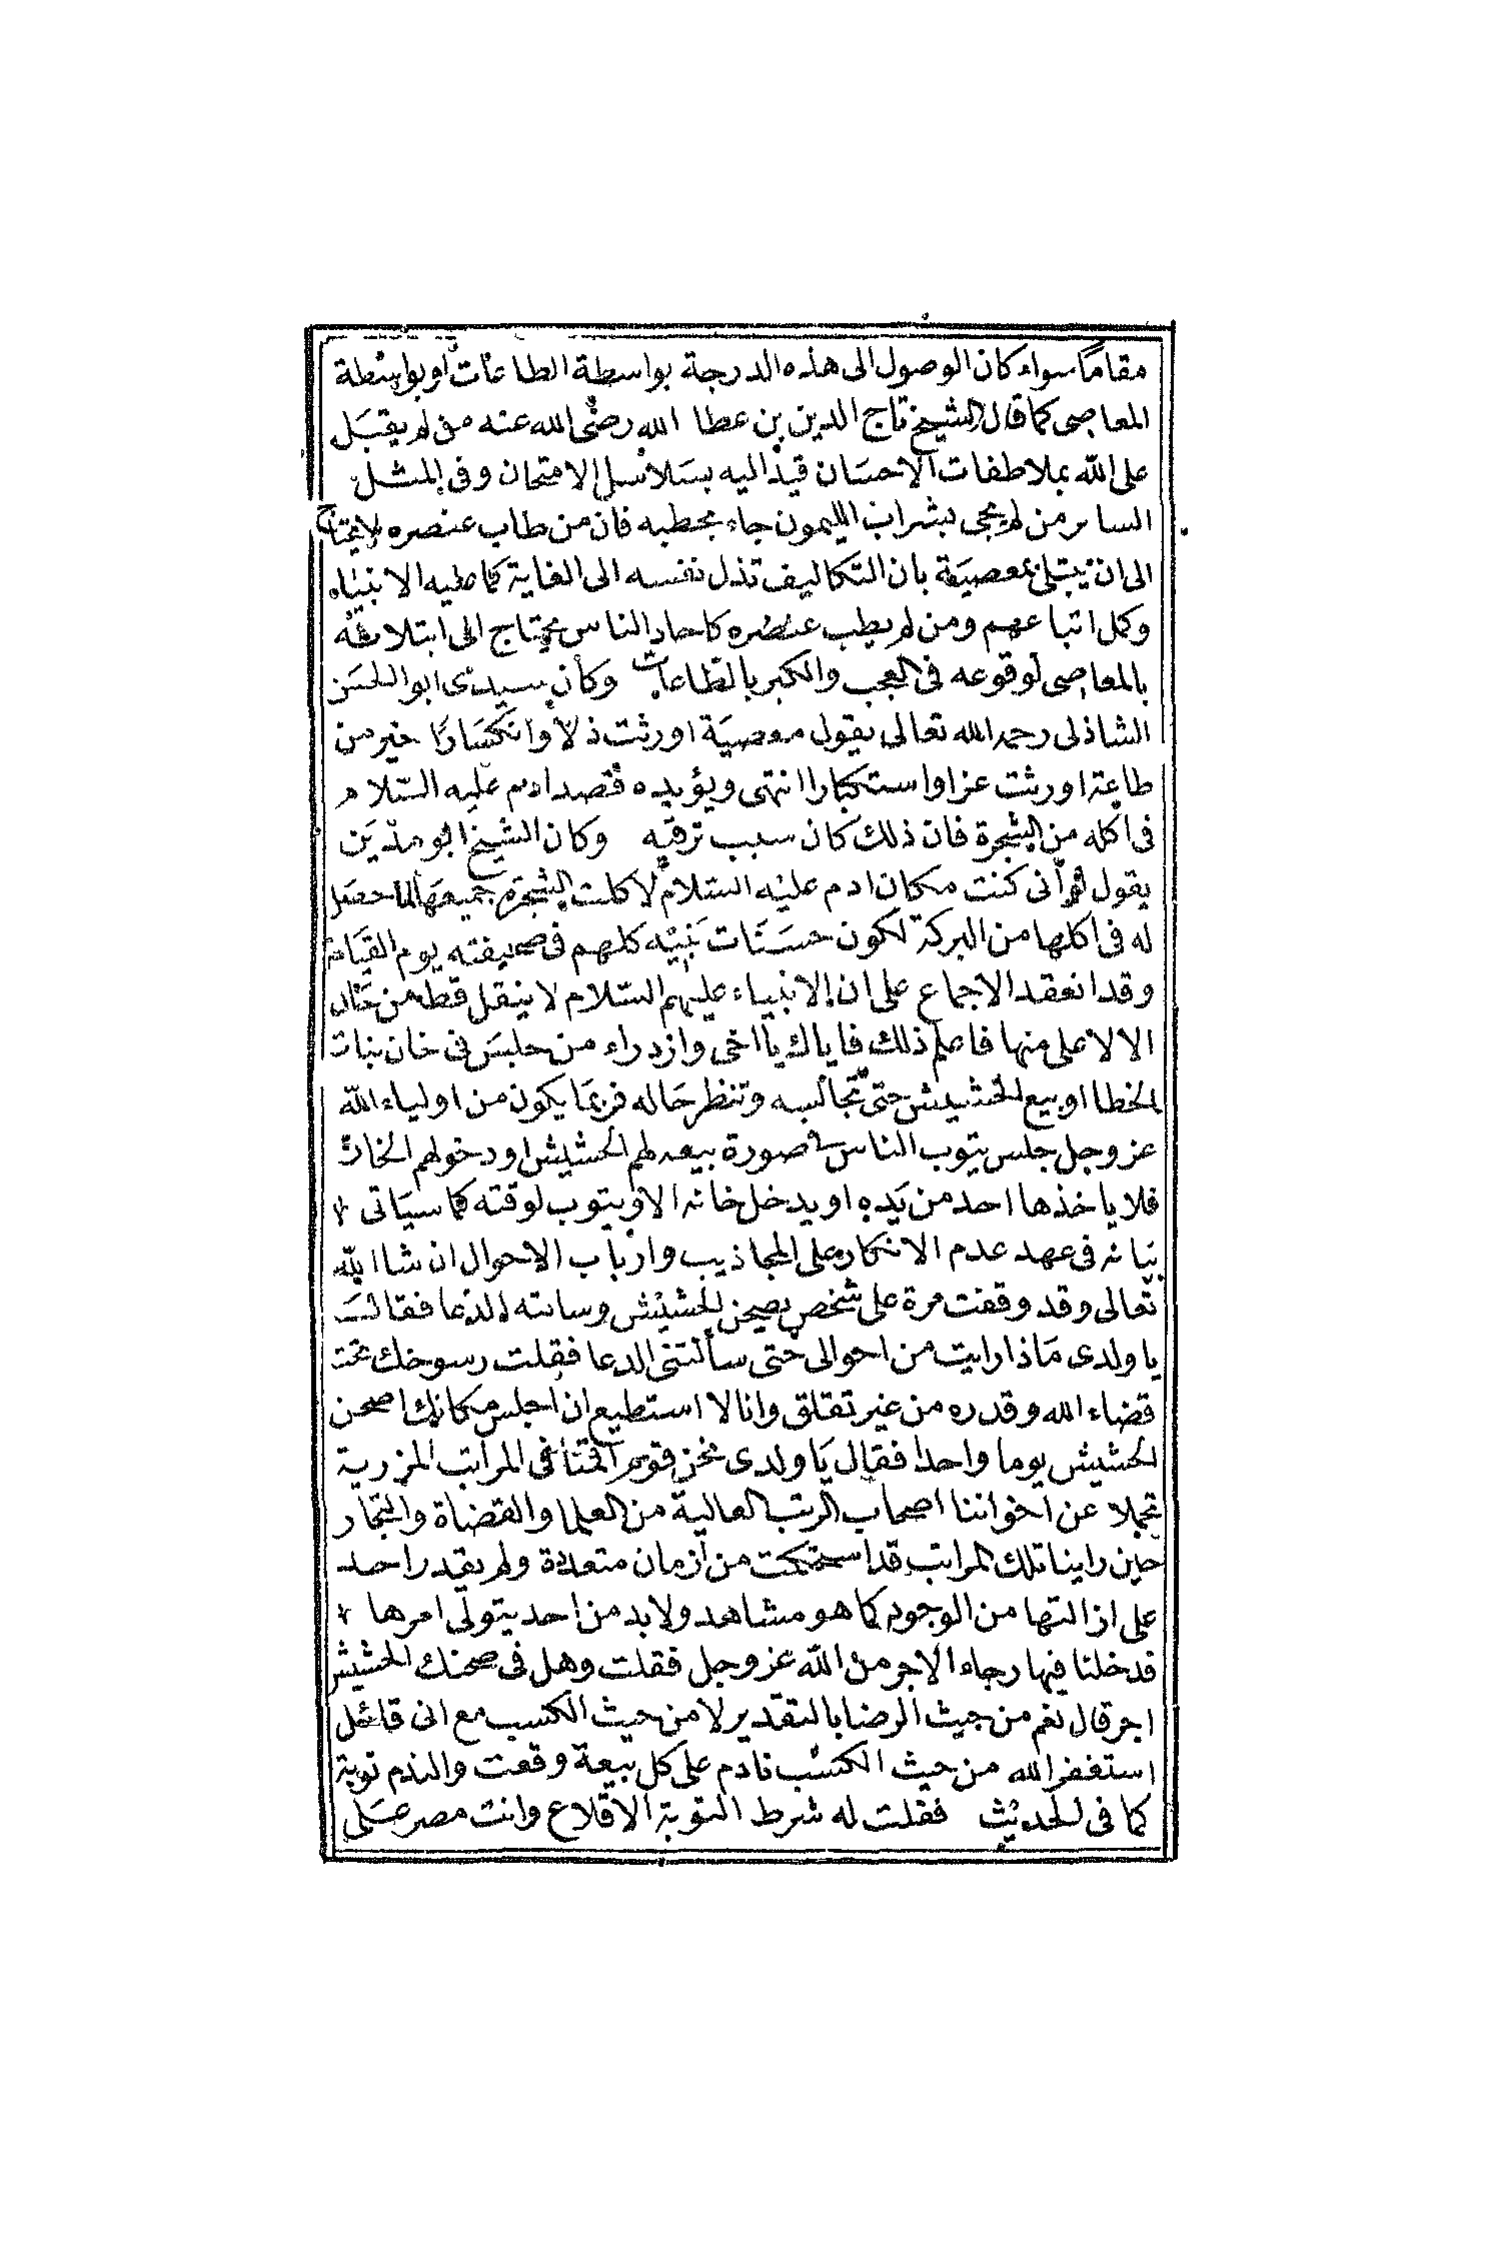 مقاما سواء كان الوصول الى هذه الدرجة بواسطة الطاعات او بواسطة
المعاصى كما قال الشيخ تاج الدين بن عطا الله رضى الله عنه من لم يقبل
على الله بملاطفات الاحسان قيد اليه بسلاسل الامتحان وفى المثل
السائر من لم يجى بشراب الليمون جاء بحطبه فان من طاب عنصره لا يحتاج
الى ان يبتلى بمعصية بان التكاليف تذل نفسه الى الغاية كما عليه الانبياء
وكمل اتباعهم ومن لم يطب عنصره كاحاد الناس يحتاج الى ابتلائه
بالمعاصى لوقوعه فى العجب والكبر بالطاعات وكان سيدى ابو الحسن
الشاذلى رحمه الله تعالى يقول معصية اورثت ذلا وانكسارا خير من
طاعة اورثت عزا واستكبارا انتهى ويؤيده قصد ادم عليه السلام
فى اكله من الشجرة فان ذلك كان سبب ترقيه وكان الشيخ ابو مدين
يقول لو انى كنت مكان ادم عليه السلام لاكلت الشجرة جميعها لما حصل
له فى اكلها من البركة لكون حسنات بنيه كلهم فى صحيفته يوم القيامة
وقد انعقد الاجماع على ان الانبياء عليهم السلام لا ينقل قط من حال
الا لاعلى منها فاعلم ذلك فاياك يا اخى وازدراء من جلس فى خان بنات
الخطا او بيع الحشيش حتى تجالسه وتنظر حاله فربما يكون من اولياء الله
عز وجل جلس يتوب الناس فى صورة بيعه لهم الحشيش او دخولهم الخان
فلا ياخذها احد من يده او يدخل خانه الا ويتوب لوقته كما سياتى
بيانه فى عهد عدم الانكار على المجاذيب وارباب الاحوال ان شا الله
تعالى وقد وقفت مرة على شخص يصحن الحشيش وسالته الدعا فقال
يا ولدى ماذا رايت من احوالى حتى سألتنى الدعا فقلت رسوخك تحت
قضاء الله وقدره من غير تقلق وانا لا استطيع ان اجلس مكانك اصحن
الحشيش يوما واحدا فقال يا ولدى نحن قوم اقمنا فى المراتب المزرية
تحملا عن اخواننا اصحاب الرتب العالية من العلما والقضاة والتجار
حين راينا تلك المراتب قد استحكمت من ازمان متعددة ولم يقدر احد
على ازالتها من الوجود كما هو مشاهد ولابد من احد يتولى امرها
فدخلنا فيها رجاء الاجر من الله عز وجل فقلت وهل فى صحنك الحشيش
اجر قال نعم من حيث الرضا بالتقدير لا من حيث الكسب مع انى قائل
استغفر الله من حيث الكسب نادم على كل بيعة وقعت والندم توبة
كما فى الحديث فقلت له شرط التوبة الاقلاع وانت مصر على